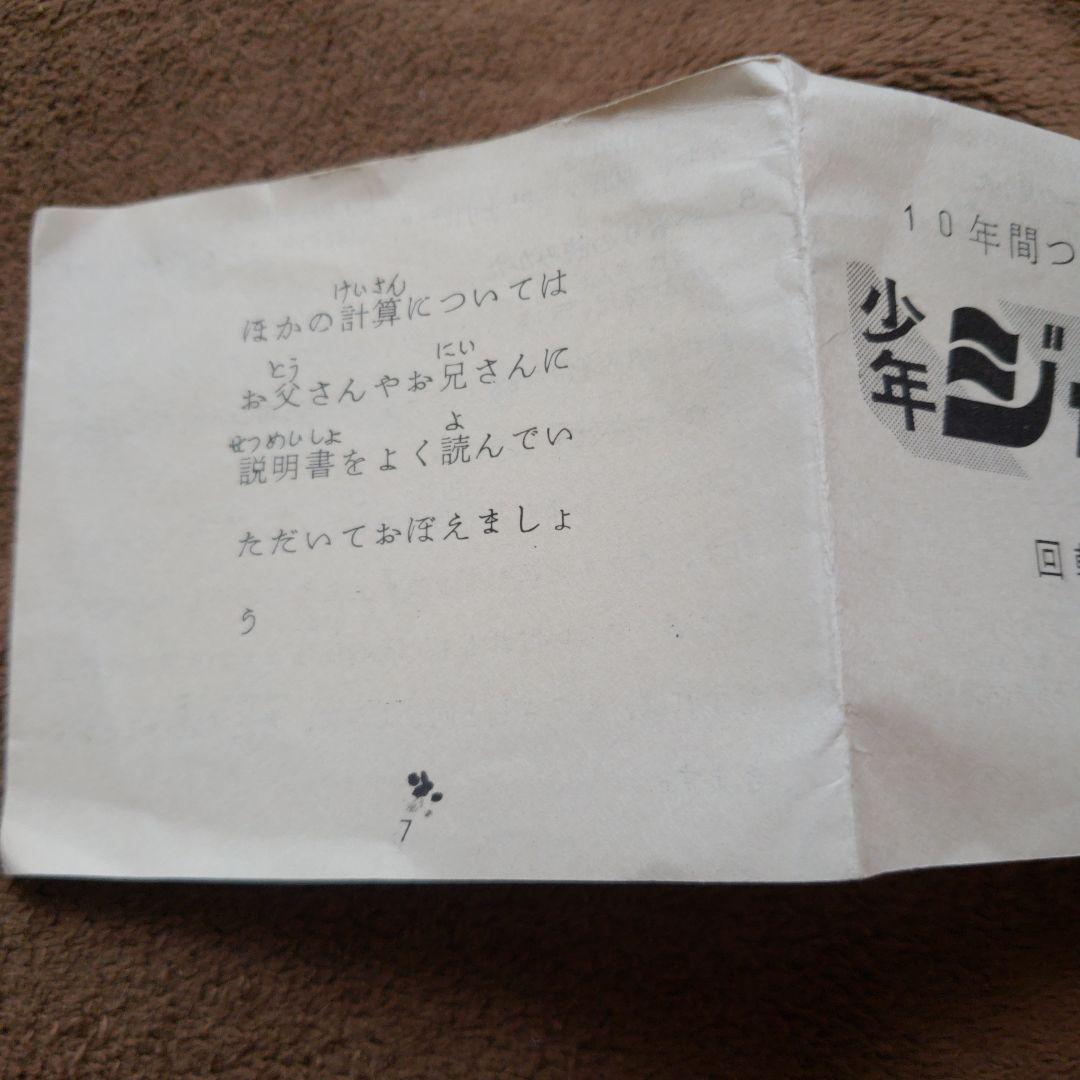 ほかの計算については
けいさん
お父さんやお兄さんに
とう
にい
説明書をよく読んでい
せつめいしよ
よ
ただいておぼえましょ
う
7
10年間つ
少年
ジ
回